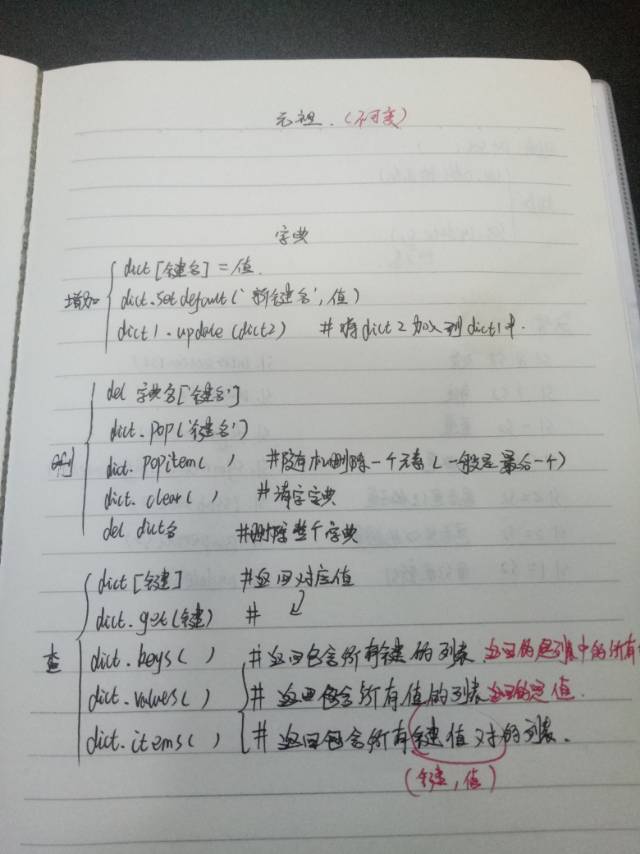 元祖.(不可变)
字典
增加
dict[键名]=值.
dict.setdefault('新键名',值)
dict1.update(dict2) #将dict2加入到dict1中.
删
del 字典名['键名']
dict.pop('键名')
dict.popitem( ) #随机删除一个元素(一般是最后一个)
dict.clear( ) #清字字典
del dict名 #删除整个字典
查
dict[键] #返回对应值
dict.get(键) #
dict.keys( ) #返回包含所有键的列表 返回的是列表中的所有
dict.values( ) #返回包含所有值的列表 返回的是值.
dict.items( ) #返回包含所有键值对的列表.
(键,值)